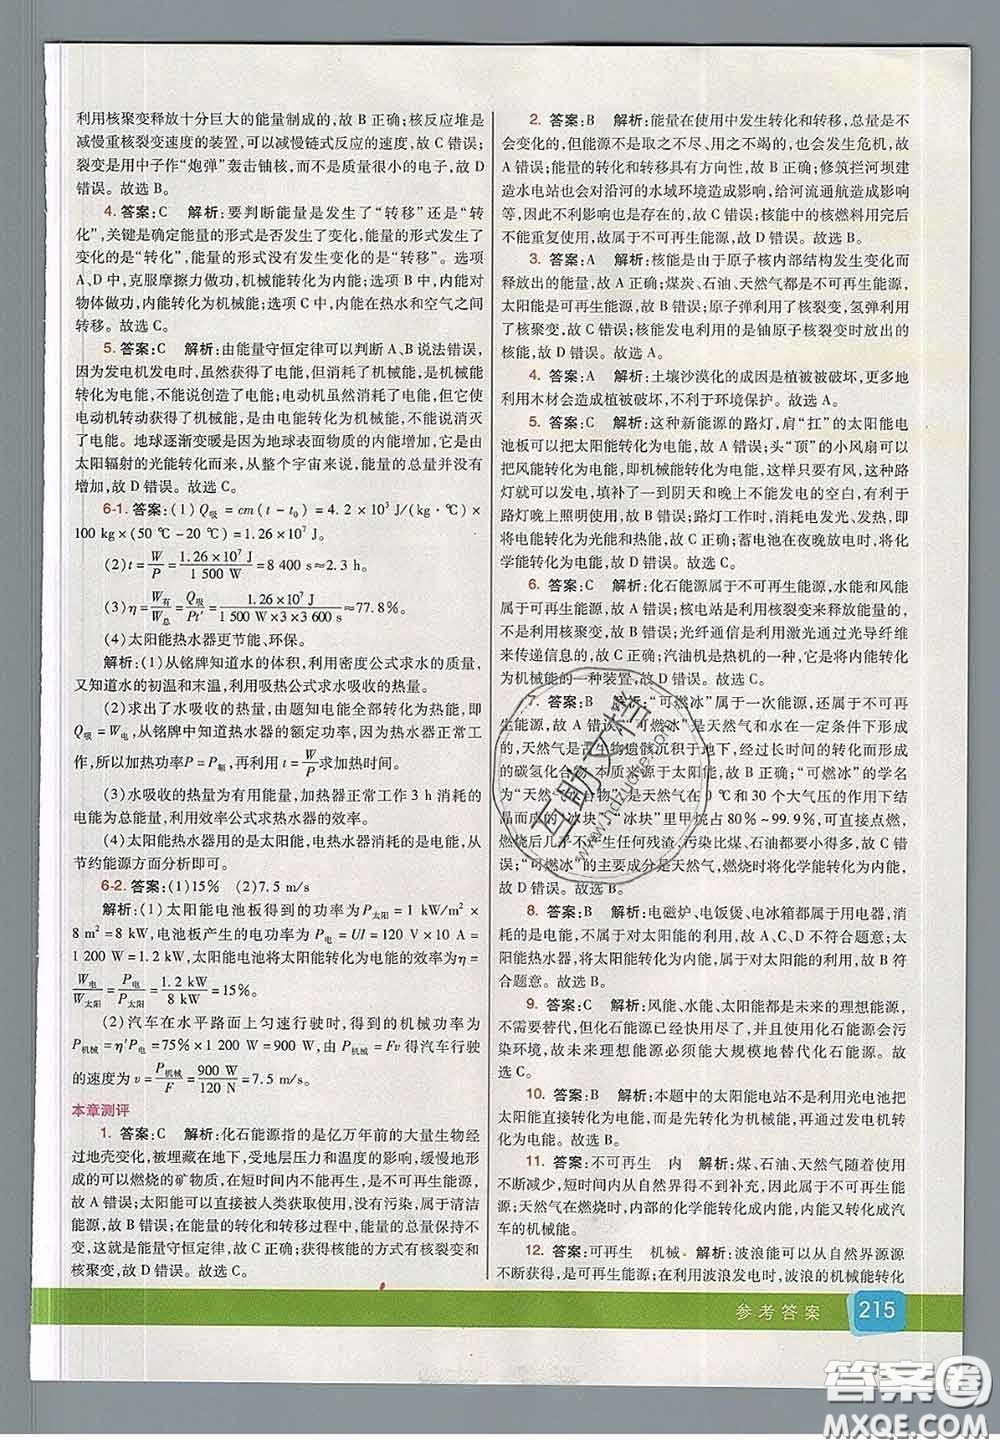 利用核聚变释放十分巨大的能量制成的,故 B 正确;核反应堆是
减慢重核裂变速度的装置,可以减慢链式反应的速度,故 C 错误;
裂变是用中子作“炮弹”轰击铀核,而不是质量很小的电子,故 D
错误。故选 B。
4. 答案:C 解析:要判断能量是发生了“转移”还是“转
化”,关键是确定能量的形式是否发生了变化,能量的形式发生了
变化的是“转化”,能量的形式没有发生变化的是“转移”。选项
A、D 中,克服摩擦力做功,机械能转化为内能;选项 B 中,内能对
物体做功,内能转化为机械能;选项 C 中,内能在热水和空气之间
转移。故选 C。
5. 答案:C 解析:由能量守恒定律可以判断 A、B 说法错误,
因为发电机发电时,虽然获得了电能,但消耗了机械能,是机械能
转化为电能,不能说创造了电能;电动机虽然消耗了电能,但它使
电动机转动获得了机械能,是由电能转化为机械能,不能说消灭
了电能。地球逐渐变暖是因为地球表面物质的内能增加,它是由
太阳辐射的光能转化而来,从整个宇宙来说,能量的总量并没有
增加,故 D 错误。故选 C。
6-1. 答案:(1) Q吸 = cm(t - t₀) = 4.2 × 10³ J/(kg · ℃) ×
100 kg×(50 ℃-20 ℃)=1.26×10⁷ J。
(2) t = W/P = 1.26×10⁷ J/1 500 W = 8 400 s≈2.3 h。
(3) η = W有/W总 = Q吸/Pt′ = 1.26×10⁷ J/1 500 W×3×3 600 s ≈77.8%。
(4)太阳能热水器更节能、环保。
解析:(1)从铭牌知道水的体积,利用密度公式求水的质量,
又知道水的初温和末温,利用吸热公式求水吸收的热量。
(2)求出了水吸收的热量,由题知电能全部转化为热能,即
Q吸=W电,从铭牌中知道热水器的额定功率,因为热水器正常工
作,所以加热功率P=P额,再利用 t=W/P求加热时间。
(3)水吸收的热量为有用能量,加热器正常工作 3 h 消耗的
电能为总能量,利用效率公式求热水器的效率。
(4)太阳能热水器用的是太阳能,电热水器消耗的是电能,从
节约能源方面分析即可。
6-2. 答案:(1)15% (2)7.5 m/s
解析:(1)太阳能电池板得到的功率为 P太阳=1 kW/m²×
8 m²=8 kW,电池板产生的电功率为 P电=UI=120 V×10 A=
1 200 W=1.2 kW,太阳能电池将太阳能转化为电能的效率为 η=
W电/W太阳=P电/P太阳=1.2 kW/8 kW=15%。
(2)汽车在水平路面上匀速行驶时,得到的机械功率为
P机械=η′P电=75%×1 200 W=900 W,由 P机械=Fv 得汽车行驶
的速度为 v=P机械/F=900 W/120 N=7.5 m/s。
本章测评
1. 答案:C 解析:化石能源指的是亿万年前的大量生物经
过地壳变化,被埋藏在地下,受地层压力和温度的影响,缓慢地形
成的可以燃烧的矿物质,在短时间内不能再生,是不可再生能源,
故 A 错误;太阳能可以直接被人类获取使用,没有污染,属于清洁
能源,故 B 错误;在能量的转化和转移过程中,能量的总量保持不
变,这就是能量守恒定律,故 C 正确;获得核能的方式有核裂变和
核聚变,故 D 错误。故选 C。
2. 答案:B 解析:能量在使用中发生转化和转移,总量是不
会变化的,但能源不是取之不尽、用之不竭的,也会发生危机,故
A 错误;能量的转化和转移具有方向性,故 B 正确;修筑拦河坝
建造水电站也会对沿河的水域环境造成影响,给河流通航造成影响
等,因此不利影响也是存在的,故 C 错误;核能中的核燃料用完后
不能重复使用,故属于不可再生能源,故 D 错误。故选 B。
3. 答案:A 解析:核能是由于原子核内部结构发生变化而
释放出的能量,故 A 正确;煤炭、石油、天然气都是不可再生能源,
太阳能是可再生能源,故 B 错误;原子弹利用了核裂变,氢弹利用
了核聚变,故 C 错误;核能发电利用的是铀原子核裂变时放出的
核能,故 D 错误。故选 A。
4. 答案:A 解析:土壤沙漠化的成因是植被被破坏,更多地
利用木材会造成植被破坏,不利于环境保护。故选 A。
5. 答案:C 解析:这种新能源的路灯,肩“扛”的太阳能电
池板可以把太阳能转化为电能,故 A 错误;头“顶”的小风扇可以
把风能转化为电能,即机械能转化为电能,这样只要有风,这种路
灯就可以发电,填补了阴天和晚上不能发电的空白,有利于
路灯晚上照明使用,故 B 错误;路灯工作时,消耗电发光、发热,即
将电能转化为光能和热能,故 C 正确;蓄电池在夜晚放电时,将化
学能转化为电能,故 D 错误。故选 C。
6. 答案:C 解析:化石能源属于不可再生能源,水能和风能
属于可再生能源,故 A 错误;核电站是利用核裂变来释放能量的,
不是利用核聚变,故 B 错误;光纤通信是利用激光通过光导纤维
来传递信息的,故 C 正确;汽油机是热机的一种,它是将内能转化
为机械能的一种装置,故 D 错误。故选 C。
7. 答案:B 解析:“可燃冰”属于一次能源,还属于不可再
生能源,故 A 错误;“可燃冰”是天然气和水在一定条件下形成
的,天然气是古生物遗骸沉积于地下,经过长时间的转化而形成
的碳氢化合物,本质来源于太阳能,故 B 正确;“可燃冰”的学名
为“天然气水合物”,是天然气在 0 ℃和 30 个大气压的作用下结
晶而成的“冰块”,“冰块”里甲烷占 80%~99.9%,可直接点燃,
燃烧后几乎不产生任何残渣,污染比煤、石油都要小得多,故 C 错
误;“可燃冰”的主要成分是天然气,燃烧时将化学能转化为内能,
故 D 错误。故选 B。
8. 答案:B 解析:电磁炉、电饭煲、电冰箱都属于用电器,消
耗的是电能,不属于对太阳能的利用,故 A、C、D 不符合题意;太
阳能热水器,是将太阳能转化为内能,属于太阳能的利用,故 B 符
合题意。故选 B。
9. 答案:C 解析:风能、水能、太阳能都是未来的理想能源,
不需要替代,但化石能源已经快用尽了,并且使用化石能源会污
染环境,故未来理想能源必须能大规模地替代化石能源。故
选 C。
10. 答案:B 解析:本题中的太阳能电站不是利用光电池把
太阳能直接转化为电能,而是先转化为机械能,再通过发电机转
化为电能。故选 B。
11. 答案:不可再生 内 解析:煤、石油、天然气随着使用
不断减少,短时间内从自然界得不到补充,因此是不可再生能源;
天然气在燃烧时,内部的化学能转化成内能,内能又转化成汽
车的机械能。
12. 答案:可再生 机械 解析:波浪能可以从自然界源源
不断获得,是可再生能源;在利用波浪发电时,波浪的机械能转化
参考答案 215
互助文档
www.hdzuoye.com
答案圈
MXQE.COM